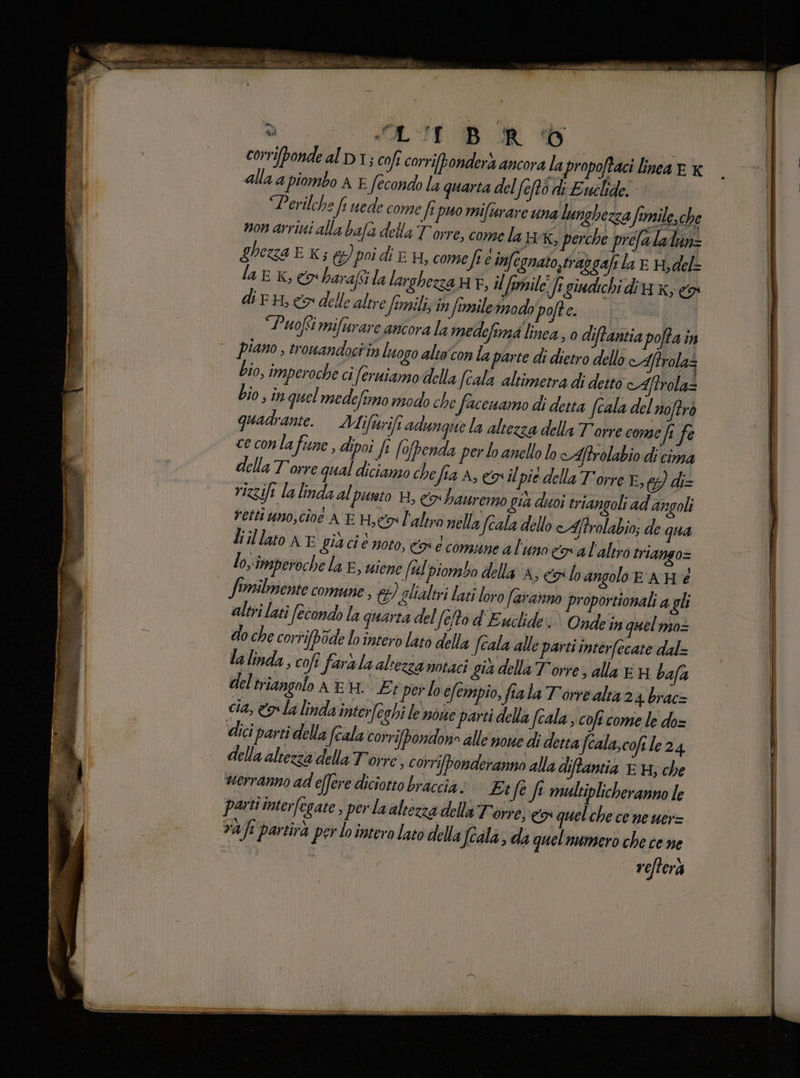 L I B R O
corriſponde al D I; coſi corriſponderà ancora la propoſtaci linea E K
alla a piombo A E ſecondo la quarta del ſeſto di Euclide.
Perilche ſi uede come ſi puo miſurare una lunghezza ſimile, che
non arriui alla baſa della Torre, come la H K, perche preſa la lun=
ghezza E K; & poi di E H, come ſi è inſegnato, traggaſi la E H, del=
la E K, & haraſsi la larghezza H F, il ſimile ſi giudichi di H K, &
di F H, & delle altre ſimili, in ſimile modo poſte.
Puoſsi miſurare ancora la medeſima linea, o diſtantia poſta in
piano, trouandoci in luogo alto con la parte di dietro dello Aſtrola=
bio, imperoche ci ſeruiamo della ſcala altimetra di detto Aſtrola=
bio, in quel medeſimo modo che faceuamo di detta ſcala del noſtro
quadrante. Miſuriſi adunque la altezza della Torre come ſi fe
ce con la fune, dipoi ſi ſoſpenda per lo anello lo Aſtrolabio di cima
della Torre qual diciamo che ſia A, & il piè della Torre E, & di=
rizziſi la linda al punto H, & hauremo già duoi triangoli ad angoli
retti uno, cioè A E H, & l'altro nella ſcala dello Aſtrolabio; de qua
li il lato A E già ci è noto, & è comune a l'uno & a l'altro triango=
lo, imperoche la E, uiene ſul piombo della A, & lo angolo E A H è
ſimilmente comune, & gli altri lati loro ſaranno proportionali a gli
altri lati ſecondo la quarta del ſeſto d'Euclide. Onde in quel mo=
do che corriſpōde lo intero lato della ſcala alle parti interſecate dal=
la linda, coſi farà la altezza notaci già della Torre, alla E H baſa
del triangolo A E H. Et per lo eſempio, ſia la Torre alta 24 brac=
cia, & la linda interſeghi le noue parti della ſcala, coſi come le do=
dici parti della ſcala corriſpondono alle noue di detta ſcala, coſi le 24
della altezza della Torre, corriſponderanno alla diſtantia E H, che
uerranno ad eſſere diciotto braccia. Et ſe ſi multiplicheranno le
parti interſegate, per la altezza della Torre, & quel che ce ne uer=
rà ſi partirà per lo intero lato della ſcala, da quel numero che ce ne
reſterà